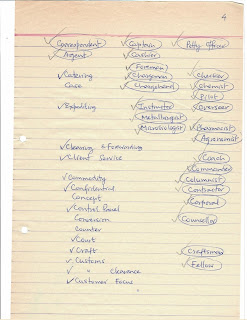 4
✓Correspondent ✓Captain ✓Petty Officer
✓Agent ✓Cashier
✓Foreman
✓Catering ✓Chargeman ✓Checker
Care ✓Chargehand ✓Chemist
✓Pilot
✓Expediting ✓Instructor ✓Overseer
✓Metallurgist
✓Microbiologist ✓Pharmacist
✓Agronomist
✓Clearing & Forwarding
✓Client Service ✓Coach
✓Commander
✓Commodity ✓Columnist
✓Confidential ✓Contractor
Concept ✓Corporal
✓Control Panel
Conversion ✓Counsellor
Counter
✓Court
✓Craft ✓Craftsman
✓Customs ✓Fellow
✓ " Clearance
✓Customer Focus